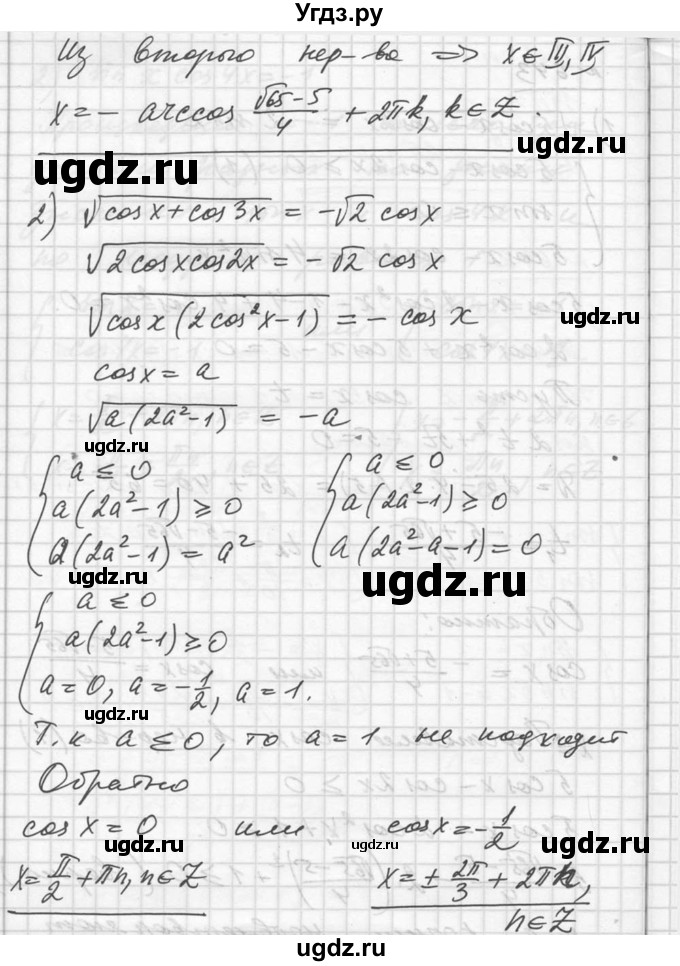 Угдз.ру
Из второго нер-ва ⇒ x ∈ III, IV
x = − arccos (√65 − 5)/4 + 2πk, k ∈ Z.
ugdz.ru ugdz.ru
2) √(cos x + cos 3x) = −√2 cos x
√(2cos x cos 2x) = −√2 cos x
√(cos x (2cos²x − 1)) = − cos x
ugdz.ru
cos x = a
√(a(2a² − 1)) = −a
ugdz.ru
{ a ≤ 0 { a ≤ 0
a(2a² − 1) ≥ 0 a(2a² − 1) ≥ 0
a(2a² − 1) = a² a(2a² − a − 1) = 0
ugdz.ru ugdz.ru
{ a ≤ 0
a(2a² − 1) ≥ 0
a = 0, a = −1/2, a = 1.
ugdz.ru
Т.к a ≤ 0, то a = 1 не подходит
Обратно
cos x = 0 или cos x = −1/2
ugdz.ru ugdz.ru
x = π/2 + πn, n ∈ Z x = ± 2π/3 + 2πn,
n ∈ Z
ugdz.ru
ugdz.ru